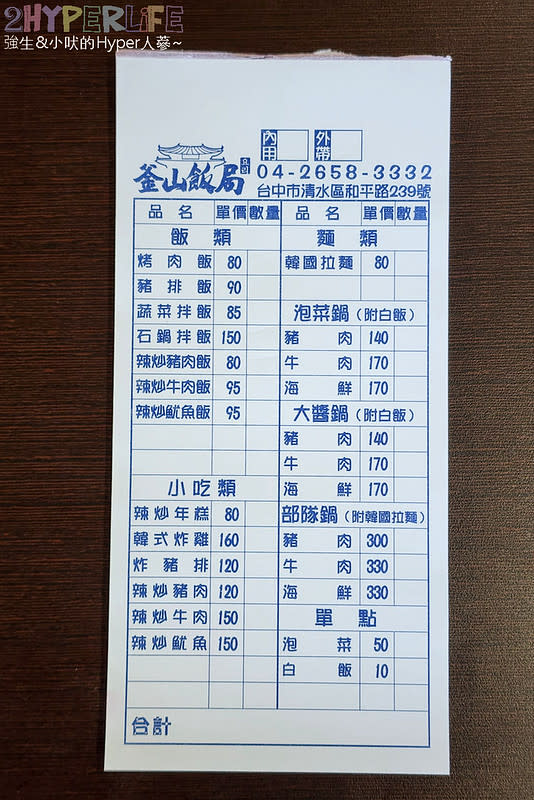 2HYPERLIFE
強生&小吠的Hyper人蔘~
內用
外帶
釜山飯局
04-2658-3332
台中市清水區和平路239號
品名 單價 數量
飯類
烤肉飯 80
豬排飯 90
蔬菜拌飯 85
石鍋拌飯 150
辣炒豬肉飯 80
辣炒牛肉飯 95
辣炒魷魚飯 95
小吃類
辣炒年糕 80
韓式炸雞 160
炸豬排 120
辣炒豬肉 120
辣炒牛肉 150
辣炒魷魚 150
品名 單價 數量
麵類
韓國拉麵 80
泡菜鍋(附白飯)
豬肉 140
牛肉 170
海鮮 170
大醬鍋(附白飯)
豬肉 140
牛肉 170
海鮮 170
部隊鍋(附韓國拉麵)
豬肉 300
牛肉 330
海鮮 330
單點
泡菜 50
白飯 10
合計